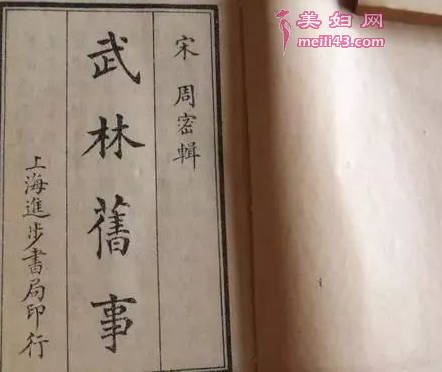 宋 周密輯
武林舊事
上海進步書局印行
美妇网
meili43.com